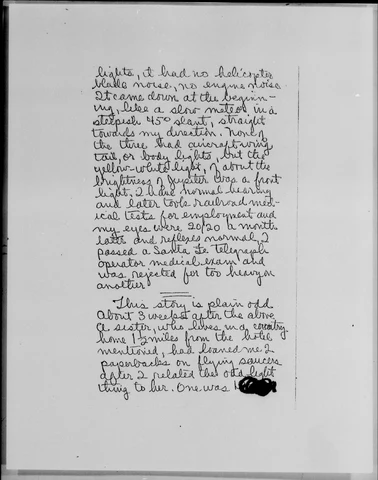 lights, it had no helicopter
blade noise, no engine noise.
It came down at the beginn-
ing, like a slow meteor in a
steepish 45° slant, straight
towards my direction. None of
the three had aircraft wing
tail, or body lights, but the
yellow-white light, of about the
brightness of Jupiter was a front
light. I have normal hearing
and later took railroad med-
ical tests for employment and
my eyes were 20/20 a month
later and reflexes normal, I
passed a Santa Fe telegraph
operator medical exam and
was rejected for too heavy on
another
This story is plain odd
about 3 weeks after the above
a sister, who lives in a country
home 1½ miles from the hotel
mentioned, had loaned me 2
paperbacks on flying saucers
after I related the odd light
thing to her. One was